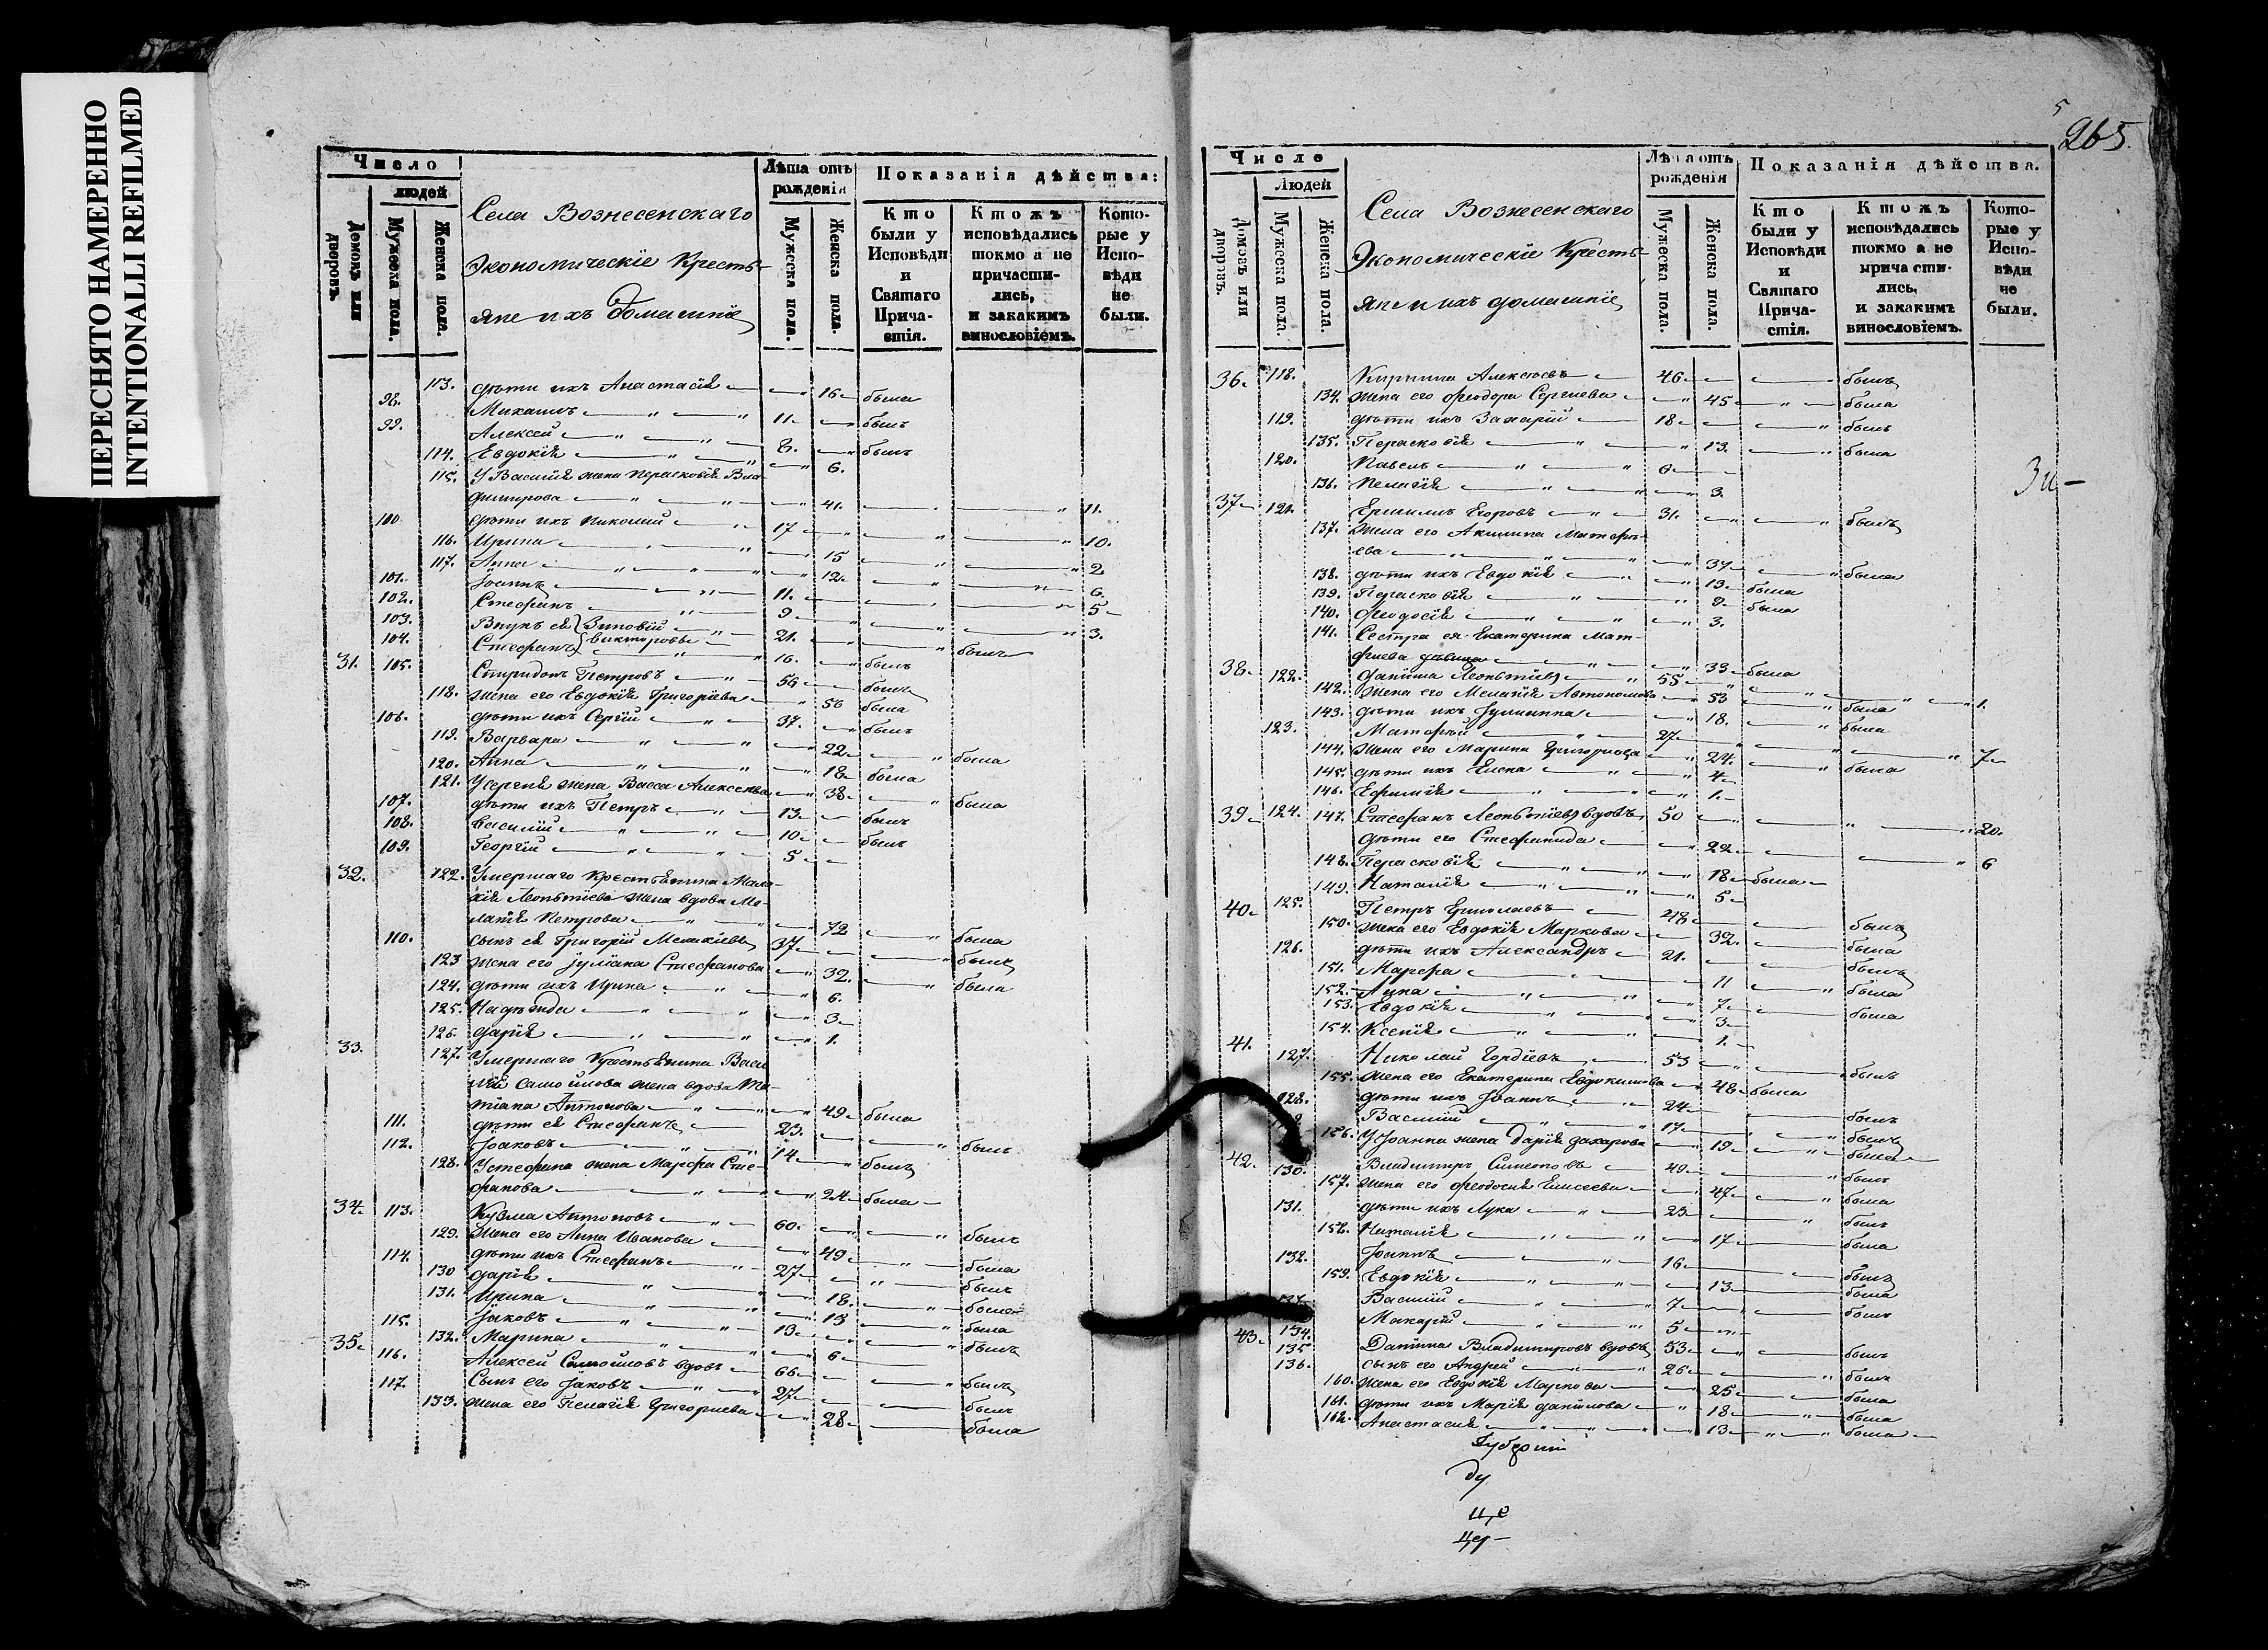 ПЕРЕСНЯТО НАМЕРЕННО
INTENTIONALLI REFILMED
Число
людей
Домовъ или дворовъ.
Мужеска пола.
Женска пола.
Села Вознесенскаго
Экономическіе Кресть-
яне и ихъ Домашніе
Лѣта отъ рожденія
Мужеска пола.
Женска пола.
Показанія дѣйства:
Кто были у Исповѣди и Святаго Прича-стія.
Ктожъ исповѣдались токмо а не причасти-лись, и закакимъ винословіемъ.
Кото-рые у Испо-вѣди не были.
113. дѣти ихъ Анастасія 16 была
98. Михаилъ 11 былъ
99. Алексей 8. былъ
114. Евдокія 6.
115. У Василія жена Перасковія Вла-
димирова 41. 11.
100 дѣти ихъ Николай 17
116. Ирина 15 10.
117. Анна 12 2
101. Іоаннъ 11. 6.
102. Стефанъ 9 5
103. Внукъ ея Зиновій 21. 3.
104. Стефанъ Викторовы 16. былъ
31. 105. Спиридонъ Петровъ 56 былъ
118. жена его Евдокія Григоріева 56 была
106. дѣти ихъ Сергій 37. былъ
119. Варвара 22 была
120. Анна 18 была
121. У Сергія жена Васса Алексеева 38 была
107. дѣти ихъ Петръ 13 былъ
108. Василій 10 былъ
109. Георгій 5
32. 122. Умершаго Крестьянина Мала-
хія Леонтіева жена вдова Ме-
ланія Петрова 72 была
110. сынъ ея Григорій Малахіевъ 37 былъ
123 жена его Іуліана Стефанова 32. была
124. дѣти ихъ Ирина 6.
125. Надежда 3
126. Дарія 1.
33. 127. Умершаго Крестьянина Васи
лія Самойлова жена вдова Та-
тіана Антонова 49 была
111. дѣти ея Стефанъ 23. былъ
112. Іаковъ 14 былъ
128. У Стефана жена Марфа Сте-
фанова 24 была
34. 113. Кузма Антоновъ 60. былъ
129. Жена его Анна Иванова 49 была
114. дѣти ихъ Стефанъ 27 былъ
130 Дарія 18. была
131. Ирина 13 была
115. Іаковъ 13 былъ
132. Марина 6
35 116. Алексей Самойловъ вдовъ 66 былъ
117. Сынъ его Іаковъ 27 былъ
133. жена его Пелагія Григориева 28 была
5
265.
Зи
Число
Людей
Домовъ или дворовъ.
Мужеска пола.
Женска пола.
Села Вознесенскаго
Экономическіе Кресть-
яне и ихъ домашніе
Лѣта отъ рожденія
Мужеска пола.
Женска пола.
Показанія дѣйства.
Кто были у Исповѣди и Святаго Прича-стія.
Ктожъ исповѣдались токмо а не прича сти-лись, и закакимъ винословіемъ.
Кото-рые у Испо-вѣди не были.
36 118. Кирилла Алексѣевъ 46 былъ
134. жена его Феодора Сергиева 45 была
119. дѣти ихъ Захарій 18 былъ
135. Перасковія 13. была
120. Павелъ 6
136. Пелагія 3.
37 121. Ермилъ Егоровъ 31. былъ
137. Жена его Акилина Матфѣ-
ева 37 была
138. дѣти ихъ Евдокія 13 была
139. Перасковія 9 была
140. Феодосія 3.
141. Сестра ея Екатерина Мат-
фиева дѣвица 33 была
38 122. Данила Леонтіевъ 55 1.
142. жена его Меланія Автономова 53 была
143. дѣти ихъ Іулианна 18. была
123. Матфей 27 7
144. жена его Марина Григориева 24. была
145. дѣти ихъ Елена 4
146. Ефимія 1.
39 124. 147. Стефанъ Леонтіевъ вдовъ 50 20.
дѣти его Стефанида 22 6
148. Перасковія 18 была
149. Наталія 5
40 125. Петръ Ермолаевъ 48 былъ
150. жена его Евдокія Маркова 32. была
126. дѣти ихъ Александръ 21. былъ
151. Марфа 11 была
152. Анна 7 была
153. Евдокія 3
154. Ксенія 1.
41. 127. Николай Гордіевъ 53 былъ
155. жена его Екатерина Евдокимова 48 была
128. дѣти ихъ Іоаннъ 24 былъ
Василій 17 былъ
156. У Іоанна жена Дарія Захарова 19 была
42. 130. Владимиръ Симеоновъ 49 былъ
157. жена его Феодосія Елисеева 47 была
131. дѣти ихъ Лука 23 былъ
158. Наталія 17 была
132. Іоаннъ 16 былъ
159. Евдокія 13 была
Василій 7 былъ
134. Макарій 5
43 135 Данила Владимировъ вдовъ 53 былъ
136. сынъ его Андрей 26 былъ
160. жена его Евдокія Маркова 25 была
161. дѣти ихъ Марія Данилова 18 была
162. Анастасія 13 была